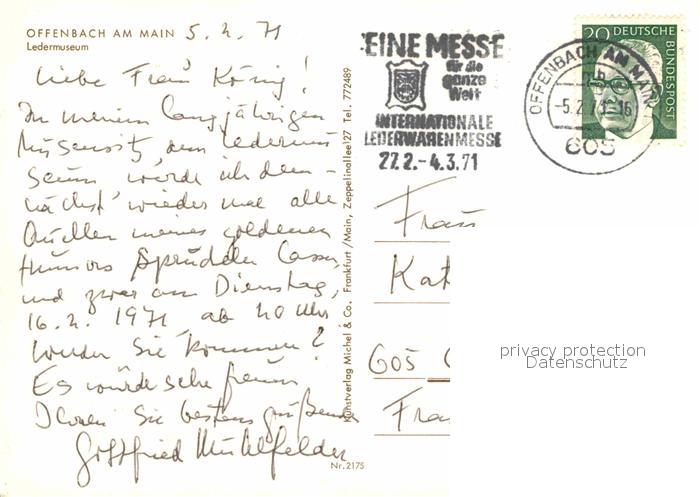 OFFENBACH AM MAIN
Ledermuseum
5.2.71
Liebe Frau König!
In meinem langjährigen
Musensitz, dem Ledermu
seum werde ich dem-
nächst wieder mal alle
Quellen meines goldenen
Humors sprudeln lassen,
und zwar am Dienstag,
16.2.1971, ab 20 Uhr
Werden Sie kommen?
Es würde sehr freuen
Ihren Sie bestens grüßenden
Gottfried Mühlfelder
Nr. 2175
Kunstverlag Michel & Co. Frankfurt/Main, Zeppelinallee 127 Tel. 772489
EINE MESSE
für die
ganze
Welt
INTERNATIONALE
LEDERWARENMESSE
27.2.-4.3.71
OFFENBACH AM MAIN
-5.2.71-16
605
20 DEUTSCHE
BUNDESPOST
Frau
Kat
605
Fra
privacy protection
Datenschutz